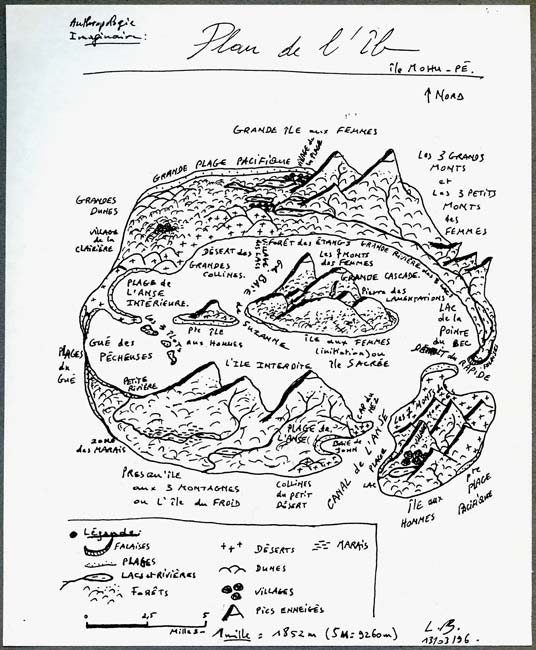 Anthropologie
Imaginaire:
Plan de l'île
île MOHU-PÉ.
↑ NORD
GRANDE ÎLE aux FEMMES
VILLAGE de la PLAGE
GRANDE PLAGE PACIFIQUE
Les 3 GRANDS
MONTS
et
Les 3 PETITS
MONTS
des
FEMMES
GRANDES
DUNES
VILLAGE
de la
CLAIRIÈRE
FORÊT des ÉTANGS
GRANDE RIVIÈRE des
DÉSERT des
GRANDES
COLLINES.
Les 7 MONTS
des FEMMES
GRANDE CASCADE.
Pierre des
LAMENTATIONS
PLAGE de
L'ANSE
INTÉRIEURE.
LAC
de la
POINTE
du BEC
DÉTROIT du RAPIDE
Pte ÎLE
aux HOMMES
SUZANNE
ÎLE aux FEMMES
(initiation) ou
île SACRÉE
GUÉ des
PÊCHEUSES
PLAGES
du
GUÉ
L'ÎLE INTERDITE
PETITE
RIVIÈRE
Les 7 MONTS
CAP du
NEZ
PLAGE de
L'ANSE
BAIE de
JOHN
ZONE
des MARAIS
CANAL de L'ANSE
PLAGE
LAC
PRESQU'ÎLE
aux 3 MONTAGNES
ou L'île du FROID
COLLINES
du PETIT
DÉSERT
ÎLE aux
HOMMES
Pte
PLAGE
PACIFIQUE
Légende:
FALAISES
PLAGES
LACS et RIVIÈRES
FORÊTS
+++ DÉSERTS
DUNES
VILLAGES
PICS ENNEIGÉS
MARAIS
0 2,5 5
Milles
1 mille = 1852 m (5M = 9260m)
L.B.
13/03/96.